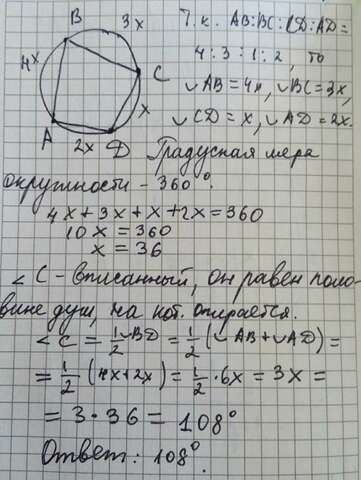 B 3x Т.к. AB:BC:CD:AD=
4x 4:3:1:2, то
C ◡AB=4x, ◡BC=3x,
x ◡CD=x, ◡AD=2x.
A 2x D Градусная мера
окружности - 360°.
4x+3x+x+2x=360
10x=360
x=36
∠C - вписанный, он равен поло-
вине дуги, на кот. опирается.
∠C = 1/2 ◡BD = 1/2 (◡AB+◡AD) =
= 1/2 (4x+2x) = 1/2 · 6x = 3x =
= 3·36 = 108°
Ответ: 108°.